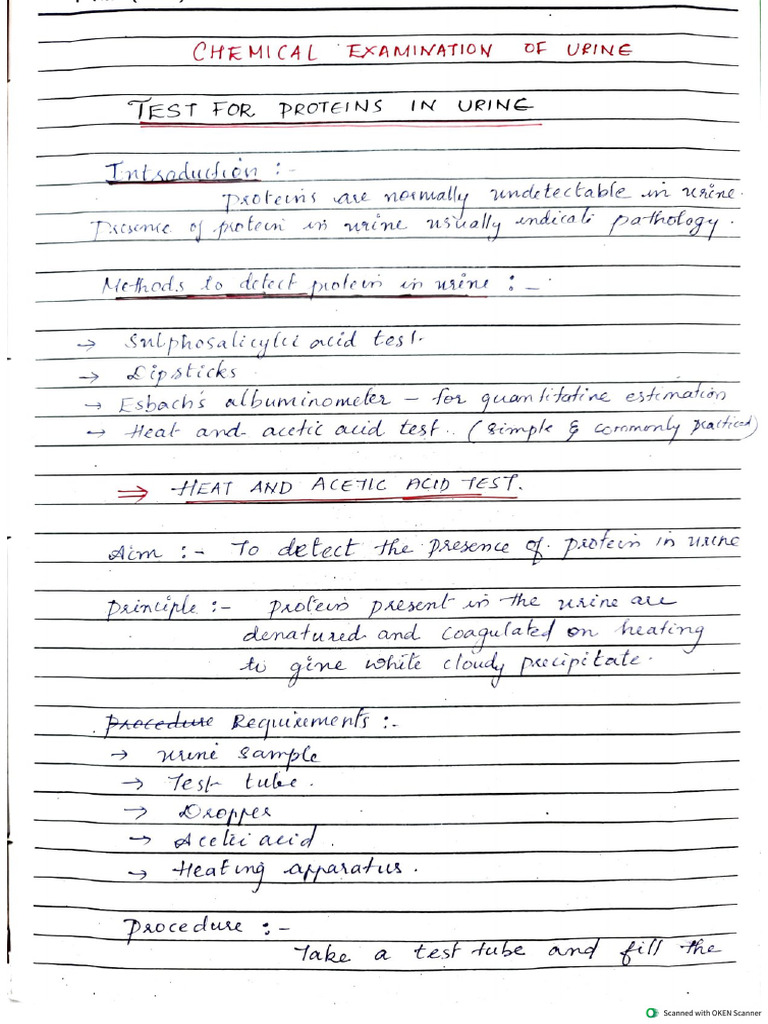 CHEMICAL EXAMINATION OF URINE
TEST FOR PROTEINS IN URINE
Introduction :-
Proteins are normally undetectable in urine.
Presence of protein in urine usually indicate pathology.
Methods to detect protein in urine :-
→ Sulphosalicylic acid test.
→ Dipsticks
→ Esbach's albuminometer – for quantitative estimation
→ Heat and acetic acid test.. (simple & commonly practiced)
⇒ HEAT AND ACETIC ACID TEST.
Aim :- To detect the presence of protein in urine
Principle :- Protein present in the urine are
denatured and coagulated on heating
to give white cloudy precipitate.
Procedure Requirements :-
→ Urine sample
→ Test tube.
→ Dropper
→ Acetic acid.
→ Heating apparatus.
Procedure :-
Take a test tube and fill the
Scanned with OKEN Scanner